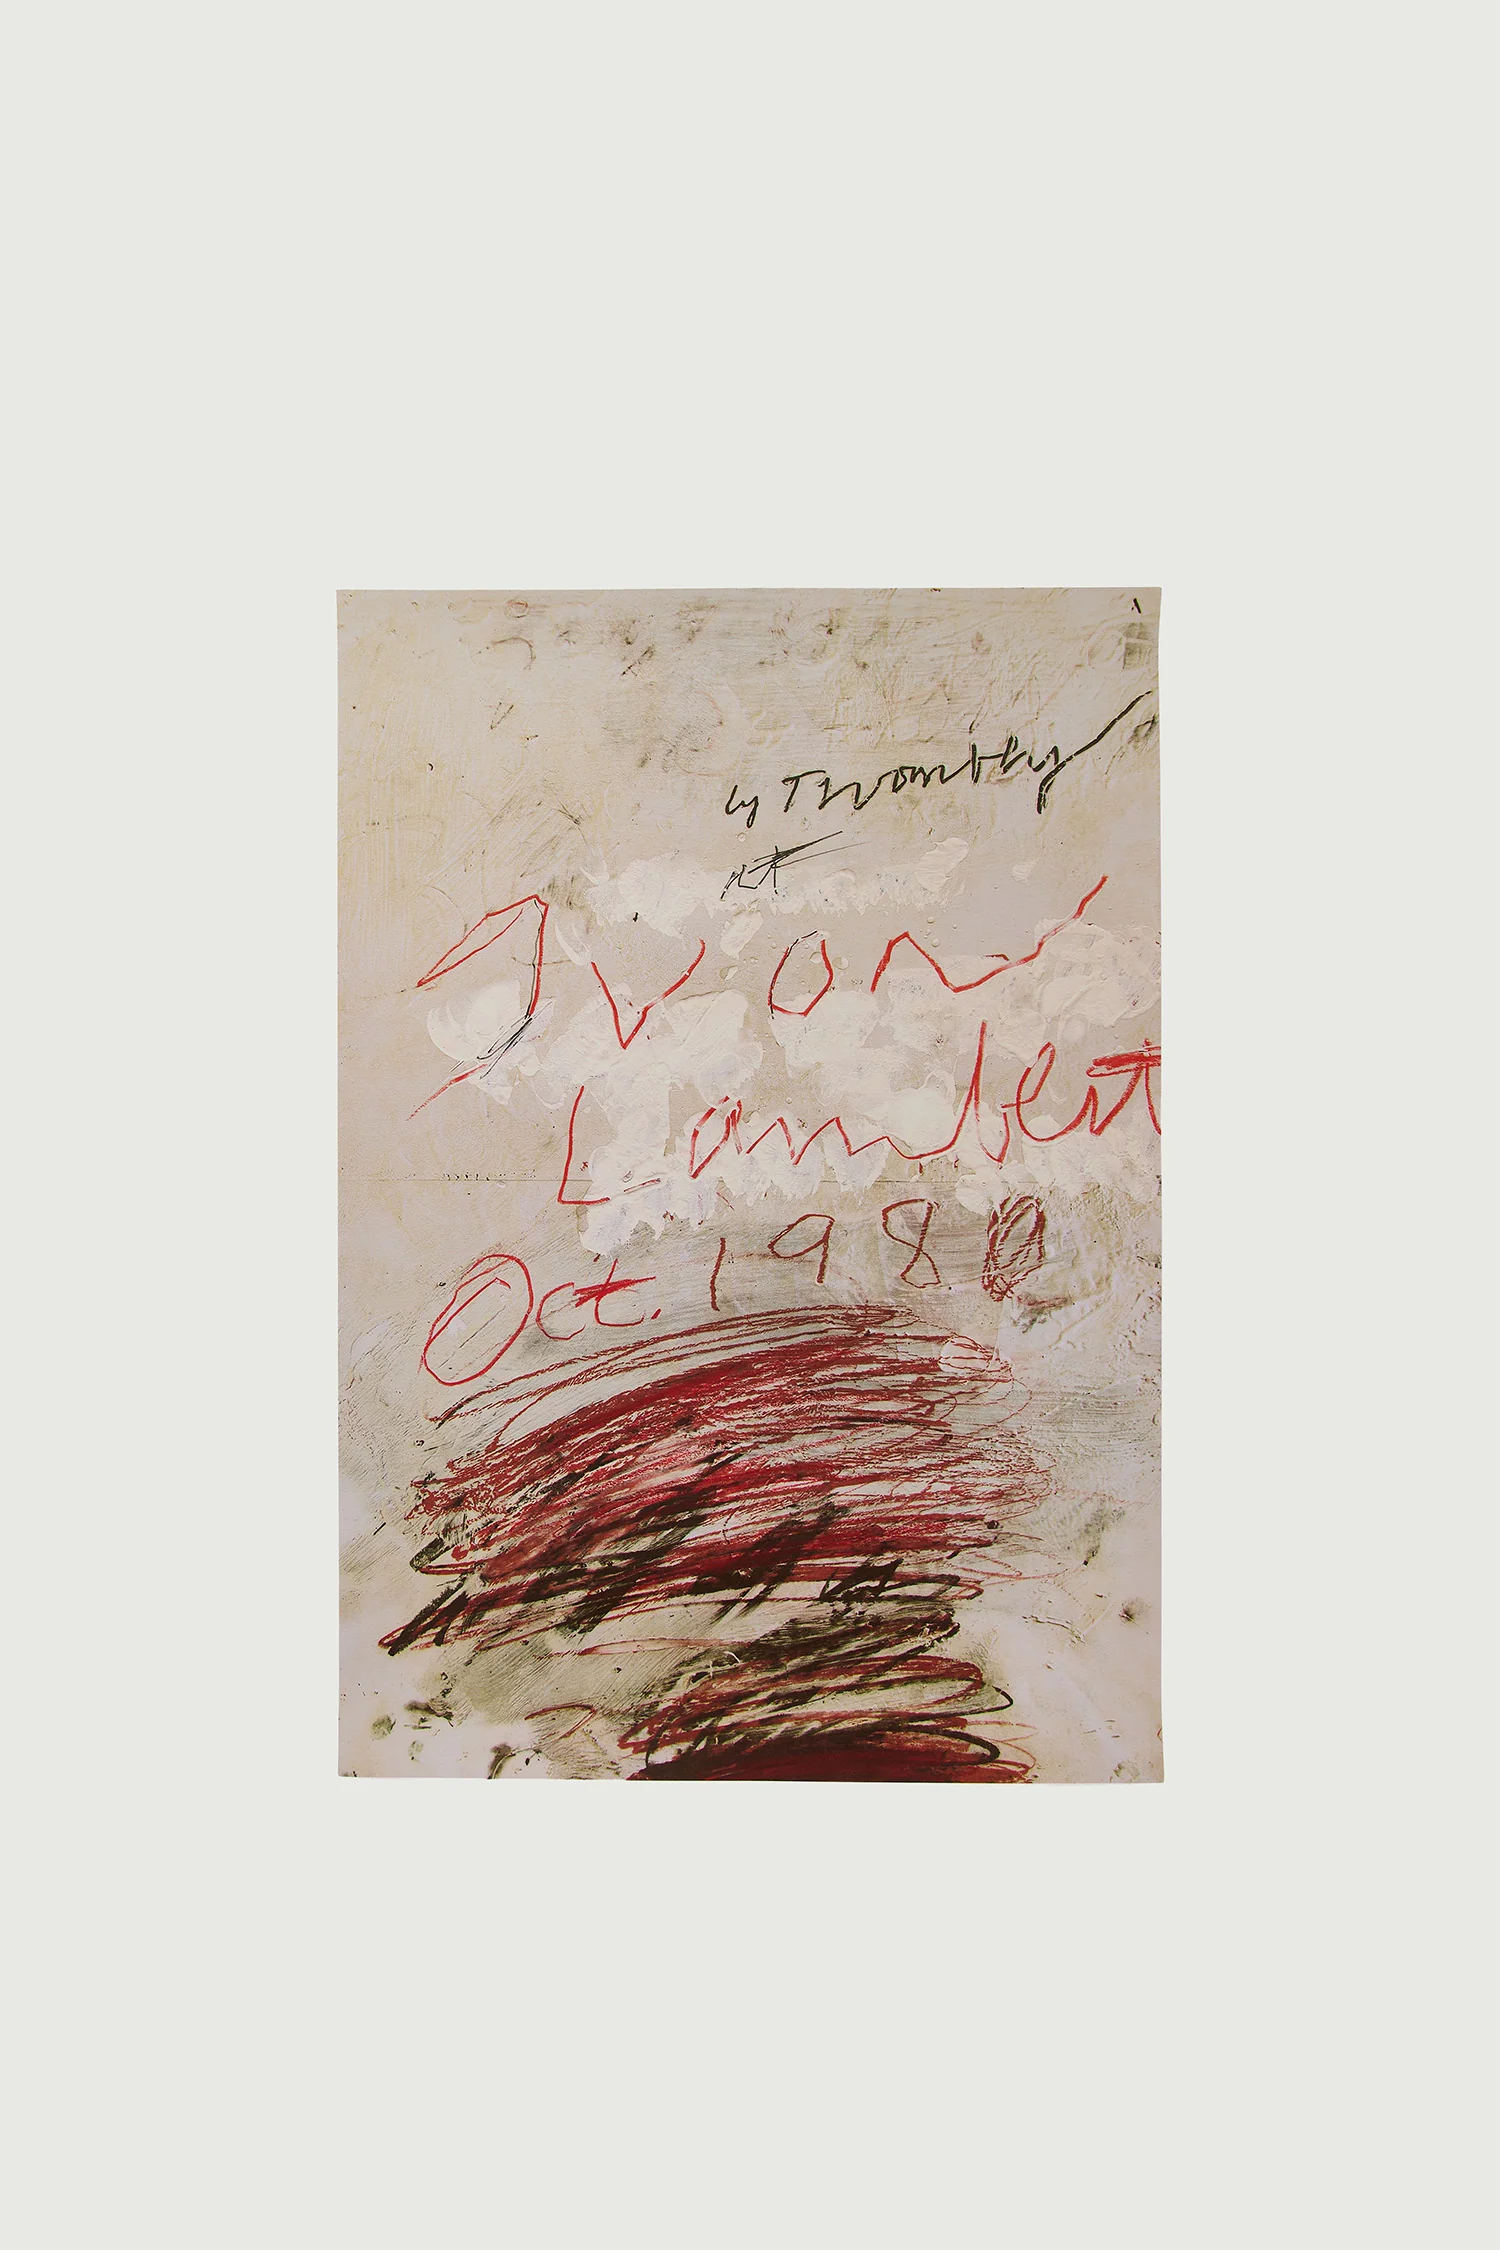 Cy Twombly
at
Yvon
Lambert
Oct. 1980